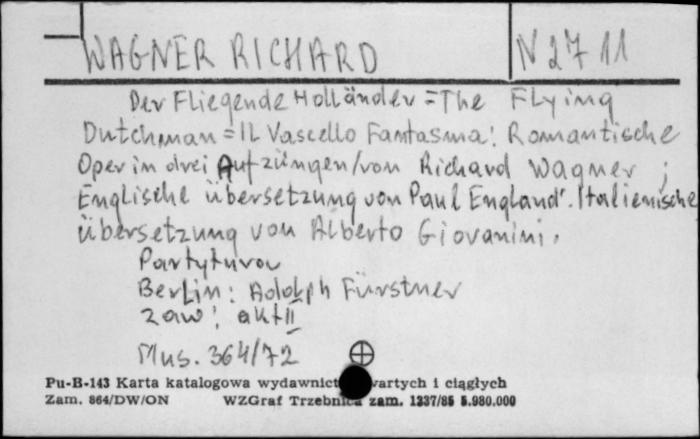 WAGNER RICHARD N 27 11
Der Fliegende Holländer = The Flying
Dutchman = IL Vascello Fantasma : Romantische
Oper in drei Aufzüngen / von Richard Wagner ;
Englische übersetzung von Paul England. Italienische
übersetzung von Alberto Giovanini.
Partytura
Berlin : Adolph Fürstner
zaw : akt II
Mus. 364/72
Pu-B-143 Karta katalogowa wydawnict wartych i ciągłych
Zam. 864/DW/ON WZGraf Trzebnica zam. 1337/85 5.980.000